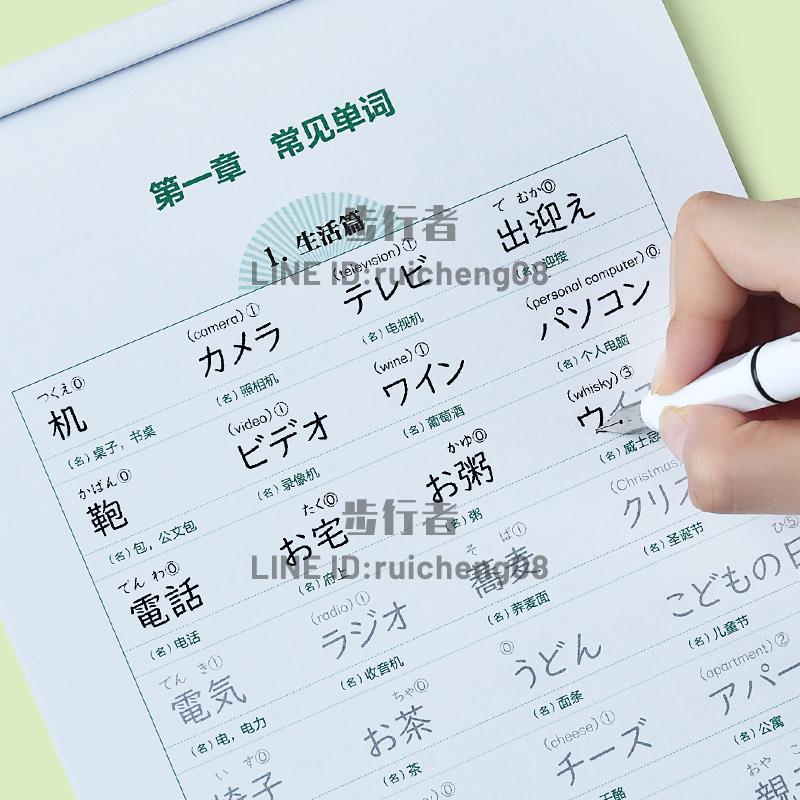 第一章 常见单词
1. 生活篇
步行者
LINE ID:ruicheng08
つくえ⓪
机
(名) 桌子，书桌
(camera)①
カメラ
(名) 照相机
(television)①
テレビ
(名) 电视机
で むか⓪
出迎え
(名) 迎接
かばん⓪
鞄
(名) 包，公文包
(video)①
ビデオ
(名) 录像机
(wine)①
ワイン
(名) 葡萄酒
(personal computer)⓪
パソコン
(名) 个人电脑
でん わ⓪
電話
(名) 电话
たく⓪
お宅
(名) 府上
かゆ⓪
お粥
(名) 粥
(whisky)③
ウイ
(名) 威士忌
步行者
LINE ID:ruicheng08
でん き①
電気
(名) 电，电力
(radio)①
ラジオ
(名) 收音机
そ ば①
蕎麦
(名) 荞麦面
(Christmas
クリス
(名) 圣诞节
い す⓪
椅子
ちゃ⓪
お茶
(名) 茶
⓪
うどん
(名) 面条
ひ⑤
こどもの日
(名) 儿童节
(cheese)①
チーズ
(apartment)②
アパー
(名) 公寓
おや こ
親